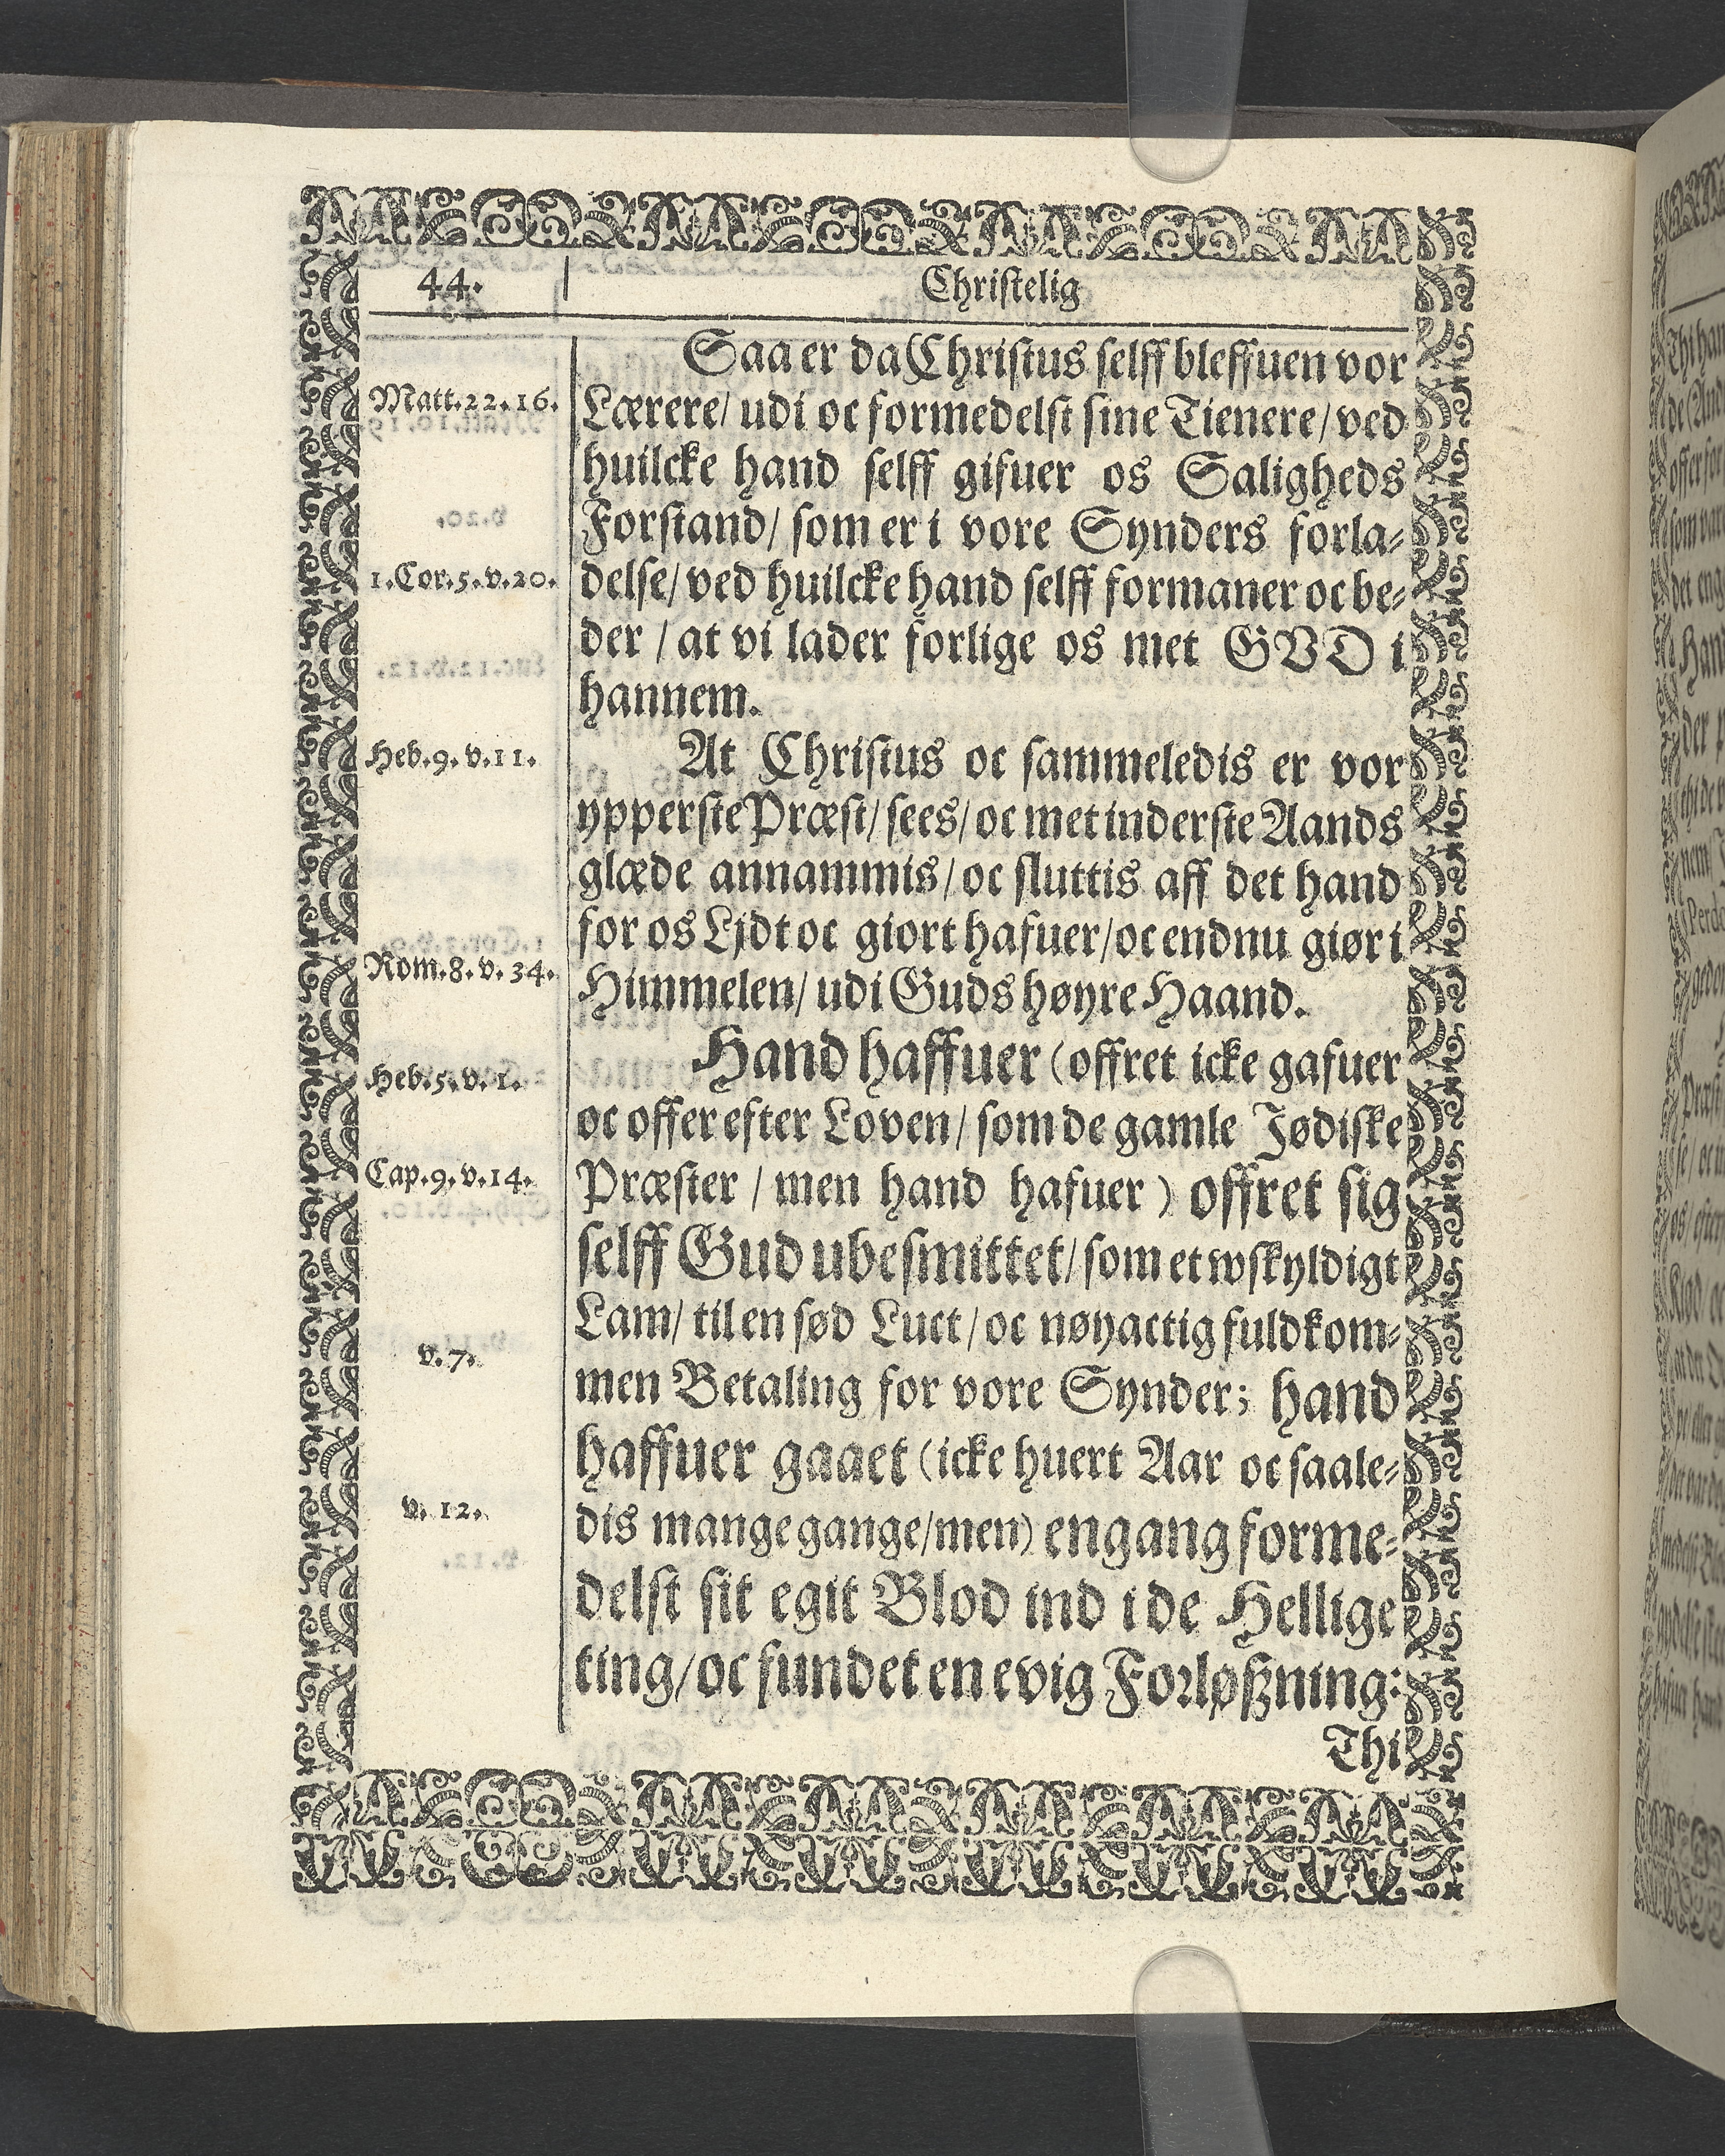 44.
Christelig
Saa er da Christus selff bleffuen vor
Matt.22.16.
Lærere/ udi oc formedelst sine Tienere/ ved
huilcke hand selff gifuer os Saligheds
Forstand/ som er i vore Synders forla-
1.Cor.5.v.20.
delse/ ved huilcke hand selff formaner oc be-
der / at vi lader forlige os met GVD i
hannem.
Heb.9.v.11.
At Christus oc sammeledis er vor
ypperste Præst/ sees/ oc met inderste Aands
glæde annammis/ oc sluttis aff det hand
for os Ljdt oc giort hafuer/ oc endnu giør i
Rom.8.v.34.
Himmelen/ udi Guds høyre Haand.
Hand haffuer (offret icke gafuer
Heb.5.v.1.
oc offer efter Loven/ som de gamle Jødiske
Cap.9.v.14.
Præster / men hand hafuer ) offret sig
selff Gud ubesmittet/ som et wskyldigt
Lam/ til en sød Luct/ oc nøyactig fuldkom-
v.7.
men Betaling for vore Synder; hand
haffuer gaaet (icke huert Aar oc saale-
v.12.
dis mange gange/men) engang forme-
delst sit egit Blod ind i de Hellige
ting/ oc fundet en evig Forløßning:
Thi